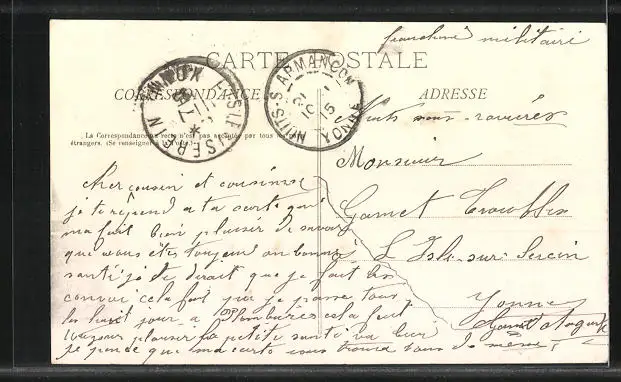 franchise militaire
CARTE POSTALE
CORRESPONDANCE
ADRESSE
NUITS-S-ARMANCON
21 10 15
YONNE
L'ISLE-S-SEREIN
Nuits sous-ravières
La Correspondance au recto n'est pas acceptée par tous les pays
étrangers. (Se renseigner à la Poste.)
Monsieur
Garnet
L Isle-sur-Serein
Yonne
cher cousin et cousine
je te répond a ta carte qui
ma fait bien plaisir de savoir
que vous êtes toujour en bonne
santé je te dirait que je fait
convoi cela fait que je passe tous
les huit jour a Plombières cela fait
toujour plaisir la petite santé va bien
je pense que ma carte vous trouve tous de même
Garnet August